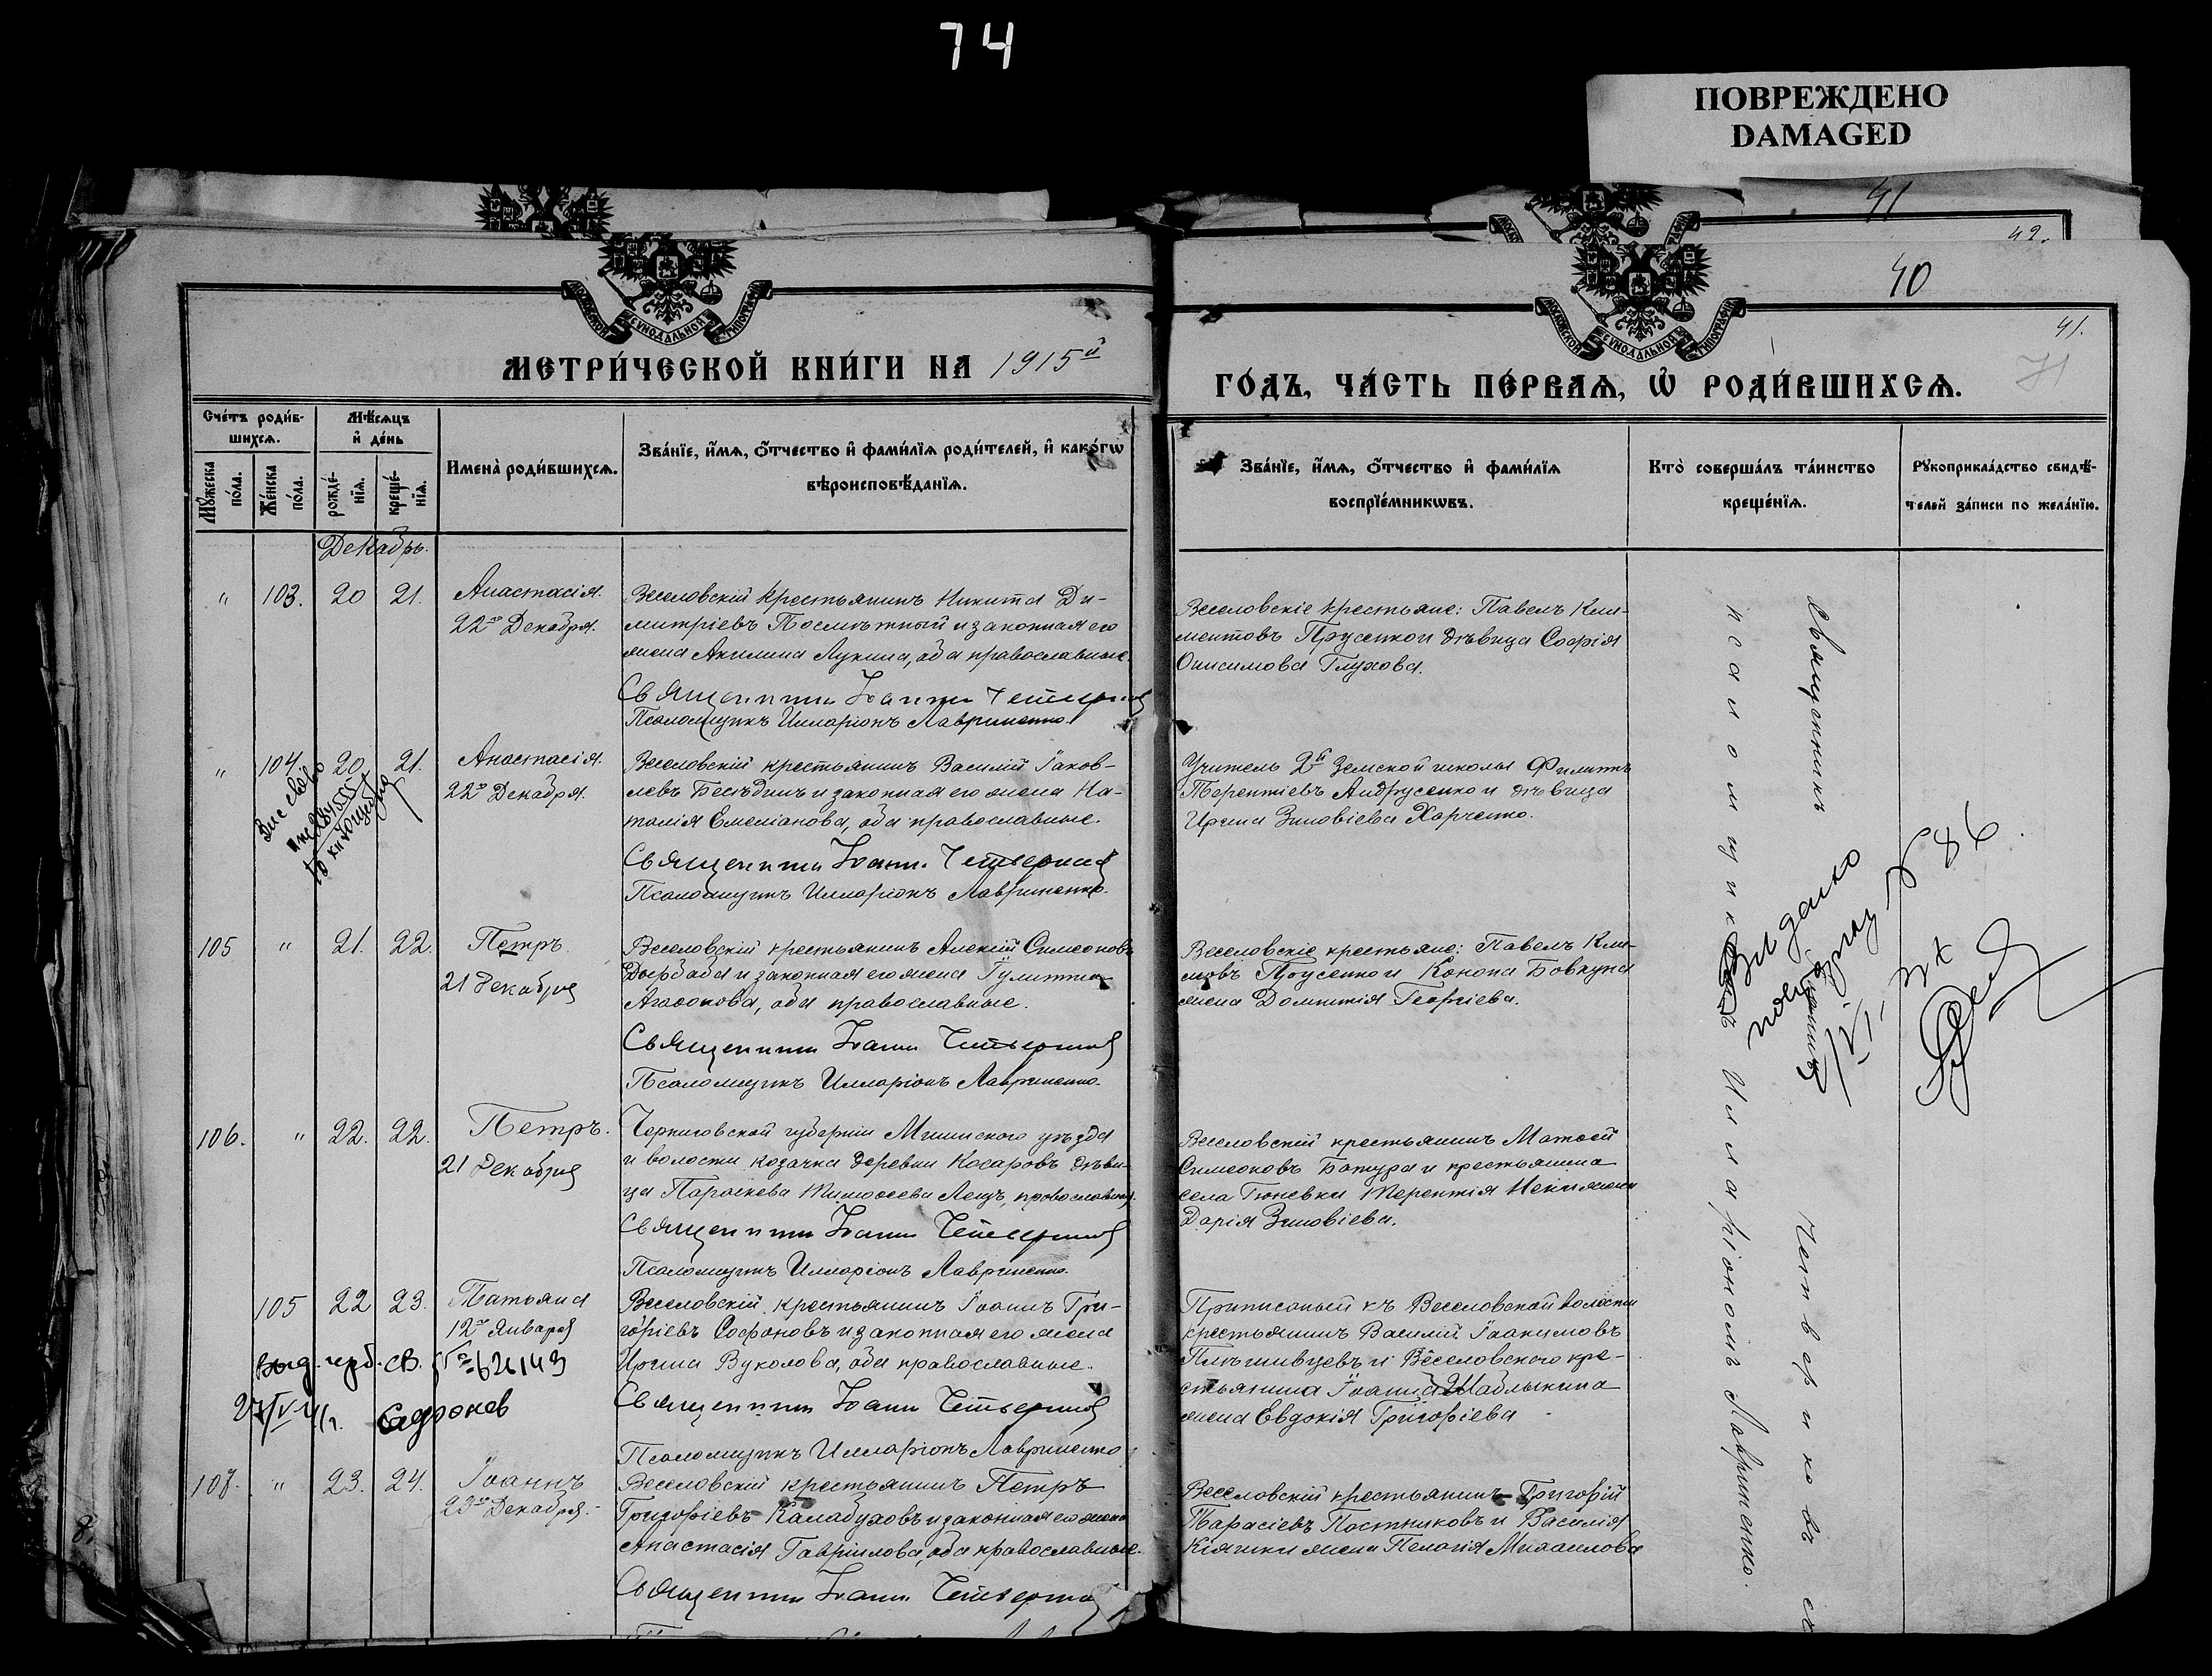 74
ПОВРЕЖДЕНО
DAMAGED
41
42.
40
41.
МЕТРИ́ЧЕСКОЙ КНИ́ГИ НА 1915й
ГО́ДЪ, ЧА́СТЬ ПЕ́РВАѦ, Ѡ РОДИ́ВШИХСѦ.
Сче́тъ роди́в-
шихсѧ.
Мѣ́сѧцъ
и҆ де́нь
Мꙋ́жеска
по́ла.
Же́нска
по́ла.
рожде́-
нїѧ.
креще́-
нїѧ.
Имена̀ роди́вшихсѧ.
Зва́нїе, и҆́мѧ, ѻ҆́тчество и҆ фами́лїѧ роди́телей, и҆ како́гѡ
вѣроисповѣ́данїѧ.
Зва́нїе, и҆́мѧ, ѻ҆́тчество и҆ фами́лїѧ
воспрїе́мникѡвъ.
Кто̀ соверша́лъ та́инство
креще́нїѧ.
Рꙋкоприкла́дство свидѣ́-
телей за́писи по жела́нїю.
Декабрь.
" 103. 20 21. Анастасія.
22го Декабря.
Веселовскій крестьянинъ Никита Ди-
митріевъ и законная его
жена Акилина Лукина, оба православные.
Священникъ Іоаннъ Четвериковъ
Псаломщикъ Илларіонъ Лавриненко.
Веселовскіе крестьяне: Павелъ Кли-
ментовъ Прусенко и дѣвица Софія
Онисимова Глухова.
" 104 20 21. Анастасія.
22го Декабря.
Веселовскій крестьянинъ Василій Іаков-
левъ Бесѣдинъ и законная его жена На-
талія Емеліанова, оба православные.
Священникъ Іоаннъ Четвериковъ
Псаломщикъ Илларіонъ Лавриненко.
Учитель 2й Земской школы Филиппъ
Терентіевъ Андрусенко и дѣвица
Ирина Зиновіева Харченко.
105 " 21. 22. Петръ.
21 Декабря
Веселовскій крестьянинъ Алексій Симеоновъ
и законная его жена Гулитта
Агафонова, оба православные.
Священникъ Іоаннъ Четвериковъ
Псаломщикъ Илларіонъ Лавриненко.
Веселовскіе крестьяне: Павелъ Кли-
мовъ Прусенко и Конона Бовкуна
жена Домникія Георгіева.
106. " 22. 22. Петръ.
21 Декабря
Черниговской губерніи Мглинскаго уѣзда
и волости козачка деревни Косаровъ дѣви-
ца Параскева Тимофеева Лещъ, православная.
Священникъ Іоаннъ Четвериковъ
Псаломщикъ Илларіонъ Лавриненко.
Веселовскій крестьянинъ Матфей
Симеоновъ Батура и крестьянина
села Терентія жена
Дарія Зиновіева.
105 22 23. Татьяна
12го Января
Веселовскій крестьянинъ Іоаннъ Гри-
горіевъ Софоновъ и законная его жена
Ирина Вуколова, оба православные.
Священникъ Іоаннъ Четвериковъ
Псаломщикъ Илларіонъ Лавриненко
Приписаный къ Веселовской волости
крестьянинъ Василій Іоакимовъ
и Веселовского кре-
стьянина Іоанна Шаблыкина
жена Евдокія Григоріева
св. № 621143
107. " 23. 24. Іоаннъ
23го Декабря.
Веселовскій крестьянинъ Петръ
Григоріевъ Калабуховъ и законная его жена
Анастасія Гавріилова, оба православные.
Священникъ Іоаннъ Четвериковъ
Веселовскій крестьянинъ Григорій
Тарасіевъ Постниковъ и Василія
Кіяшки жена Пелагія Михаилова
Священникъ Іоаннъ Четвериковъ съ
псаломщикомъ Илларіономъ Лавриненко.
Видано
№ 86.